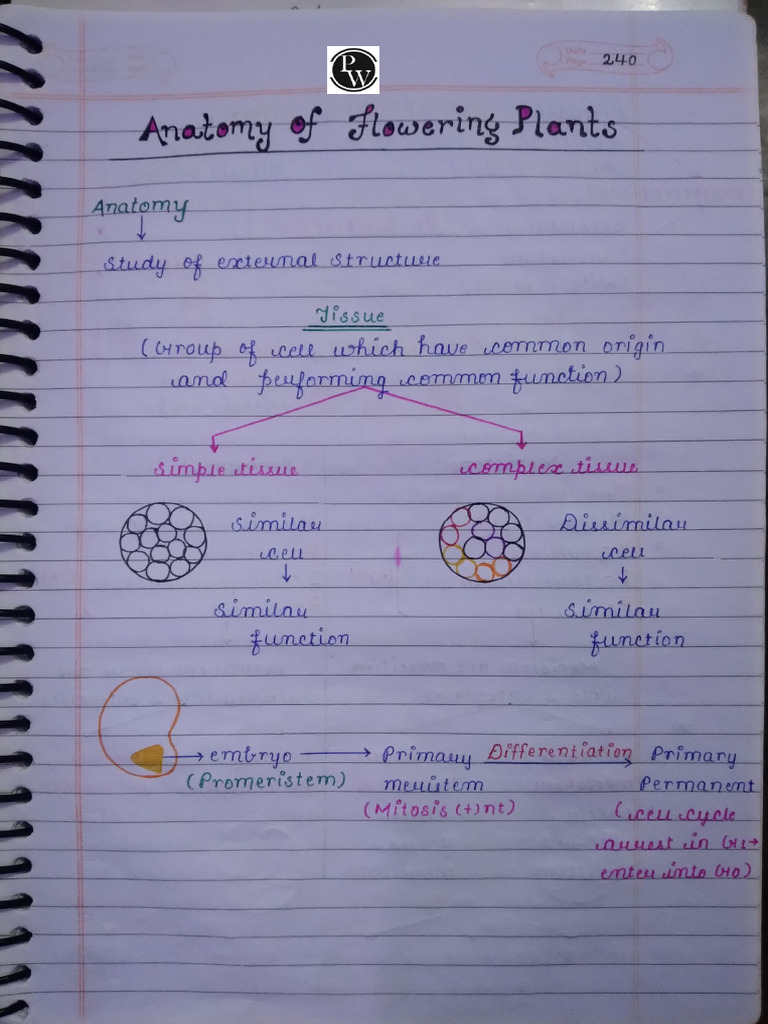 PW
Date
Page 240
Anatomy of Flowering Plants
Anatomy
↓
Study of external structure
Tissue
(Group of cell which have common origin
and performing common function)
Simple tissue
complex tissue
Similar
cell
↓
Similar
function
Dissimilar
cell
↓
Similar
function
→ embryo → Primary Differentiation Primary
(Promeristem) meristem Permanent
(Mitosis (+)nt) (cell cycle
arrest in G1→
enter into G0)